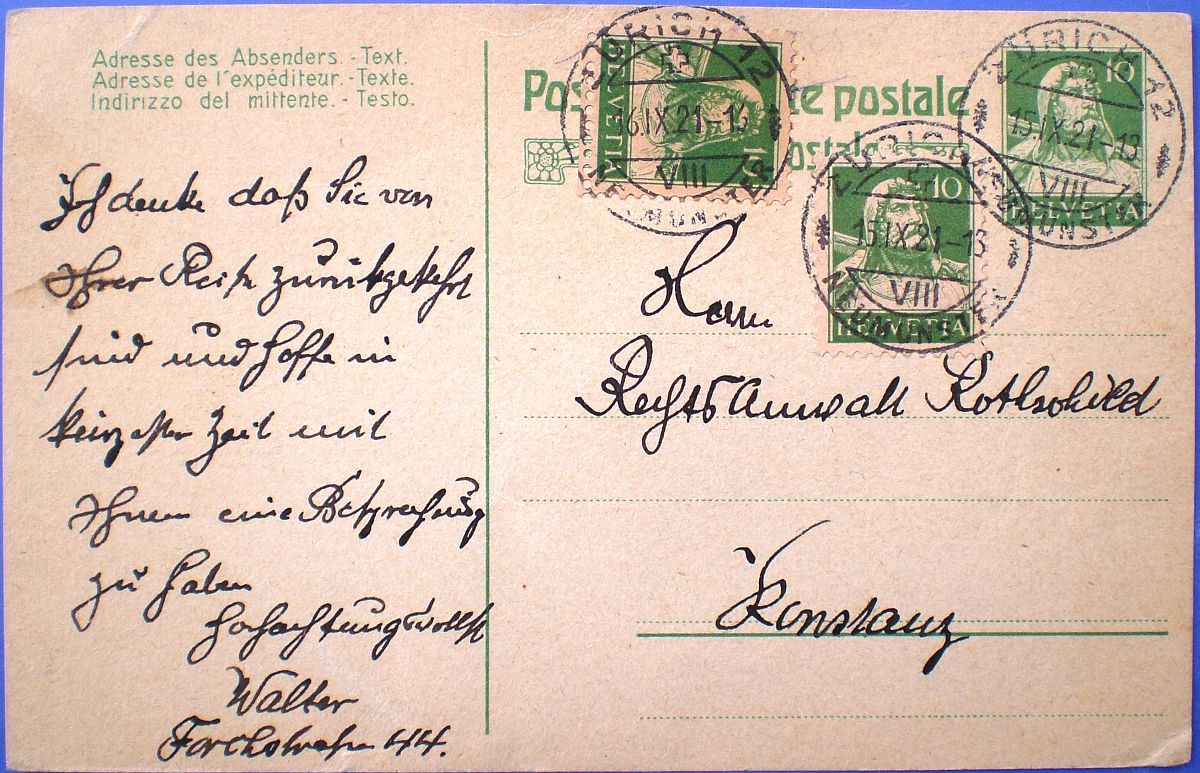 Adresse des Absenders. - Text.
Adresse de l'expéditeur. - Texte.
Indirizzo del mittente. - Testo.
Ich denke daß Sie von
Ihrer Reise zurückgekehrt
sind und hoffe in
kürzester Zeit mit
Ihnen eine Besprechung
zu haben
Hochachtungsvollst
Walter
Forchstrasse 44.
postale
ZÜRICH 12
16.IX.21-13
VIII
NEUMÜNSTER
10
HELVETIA
ZÜRICH 12
15.IX.21-13
VIII
NEUMÜNSTER
10
HELVETIA
ZÜRICH 12
15.IX.21-13
VIII
NEUMÜNSTER
10
HELVETIA
Herrn
Rechtsanwalt Rothschild
Konstanz